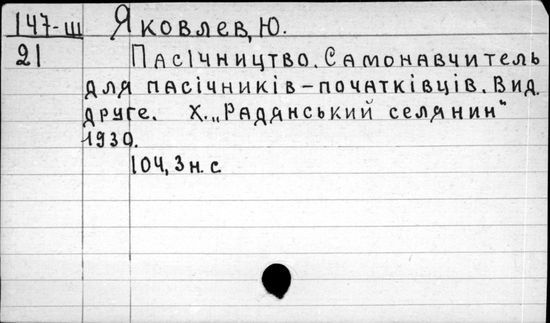 147-ш Яковлев, Ю.
21 Пасічництво. Самонавчитель
для пасічників-початківців. Вид.
друге. Х. „Радянський селянин"
1930.
104, 3 н. с.